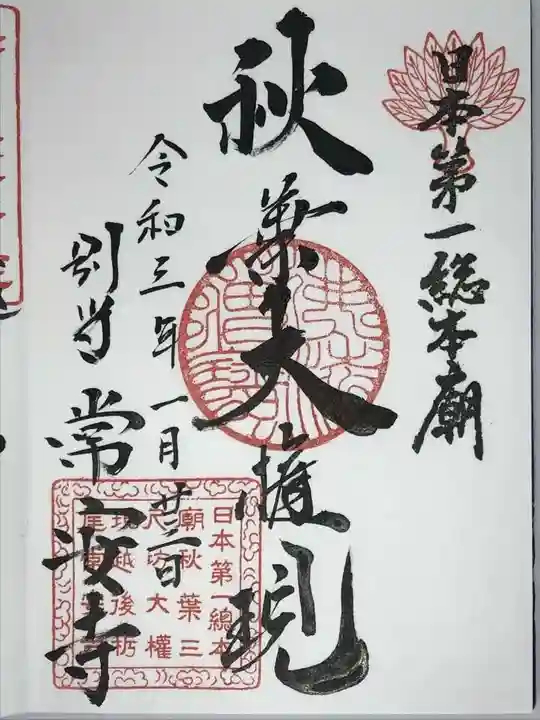 日本第一総本廟
秋葉大権現
令和三年一月廿二日
別当常安寺
日本第一總本
廟秋葉三
尺坊大權
現越後栃
尾